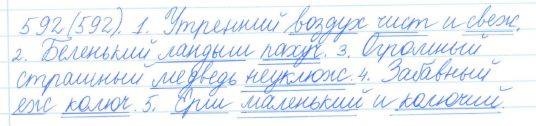 592(592). 1. Утренний воздух чист и свеж.
2. Беленький ландыш пахуч. 3. Огромный
страшный медведь неуклюж. 4. Забавный
еж колюч. 5. Ёрш маленький и колючий.